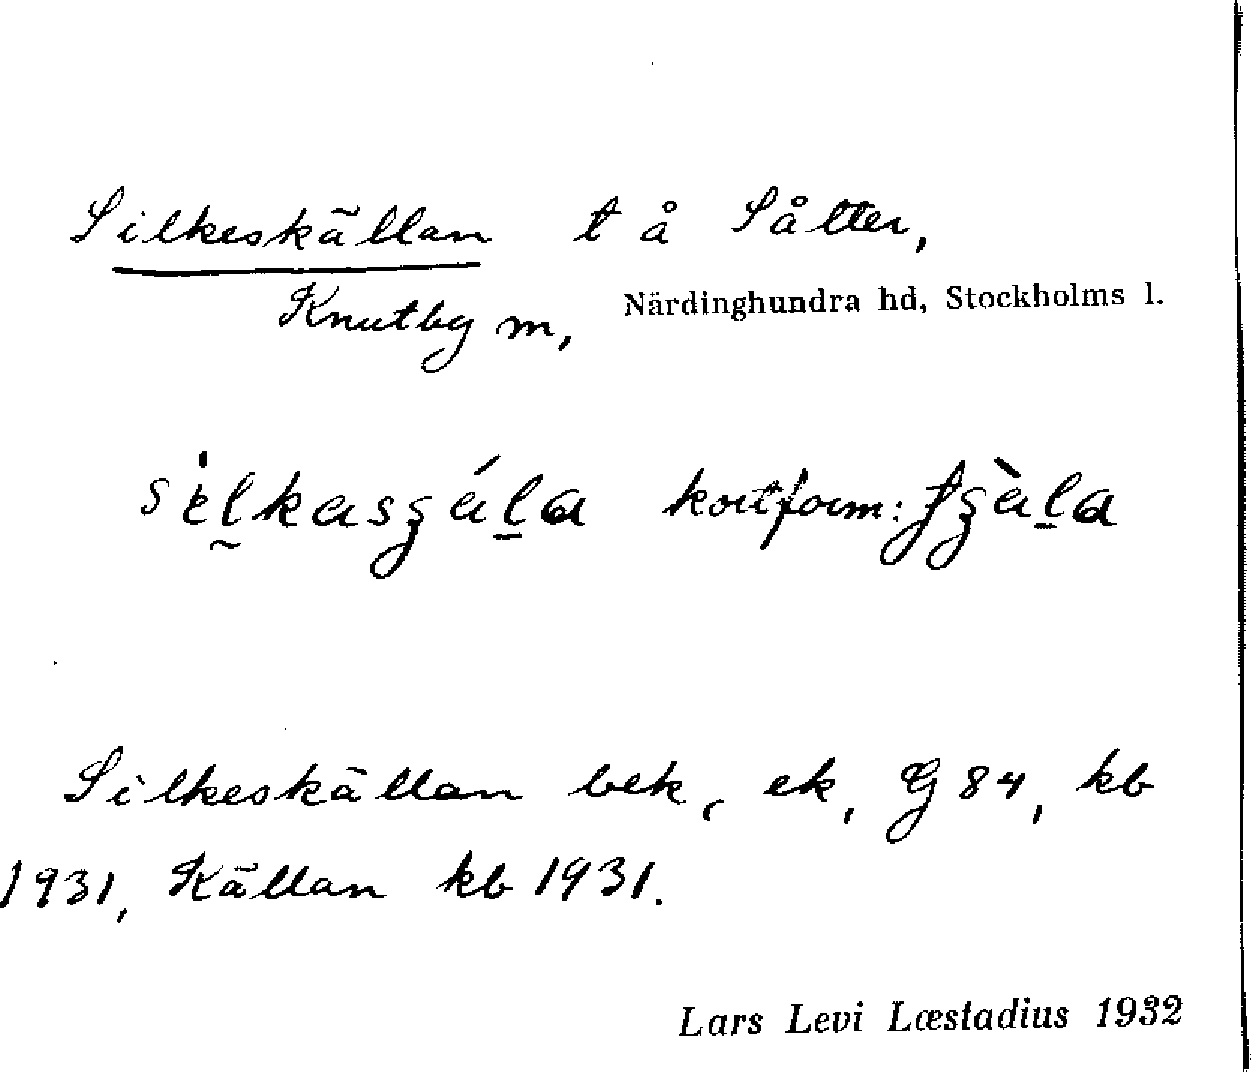 Silkeskällan t å Såtter,
Knutby m, Närdinghundra hd, Stockholms l.
kortform:
Silkeskällan bek, ek, G 84, kb
1931, Källan kb 1931.
Lars Levi Læstadius 1932